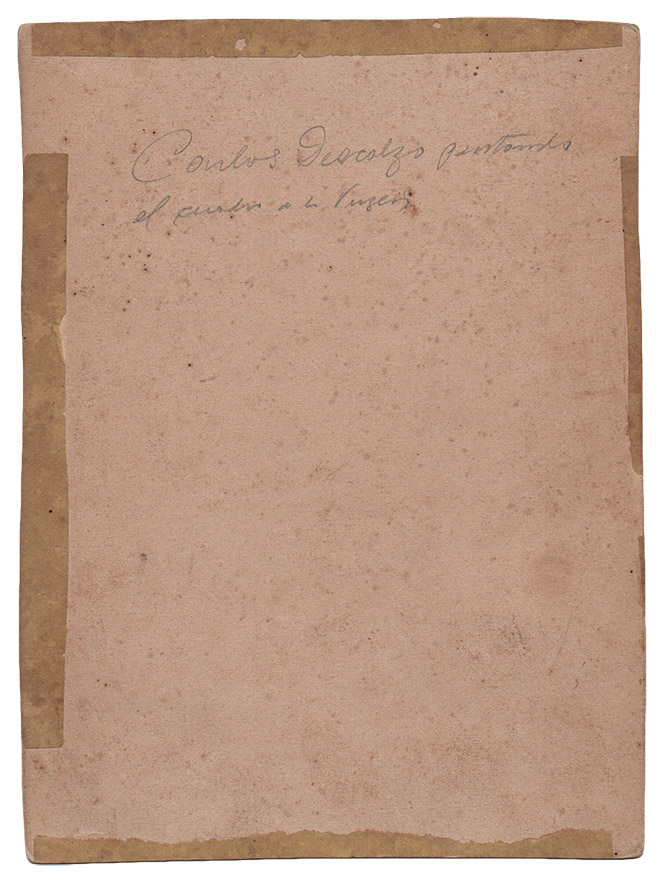 Carlos Descalzo pintando
el cuadro a la Virgen